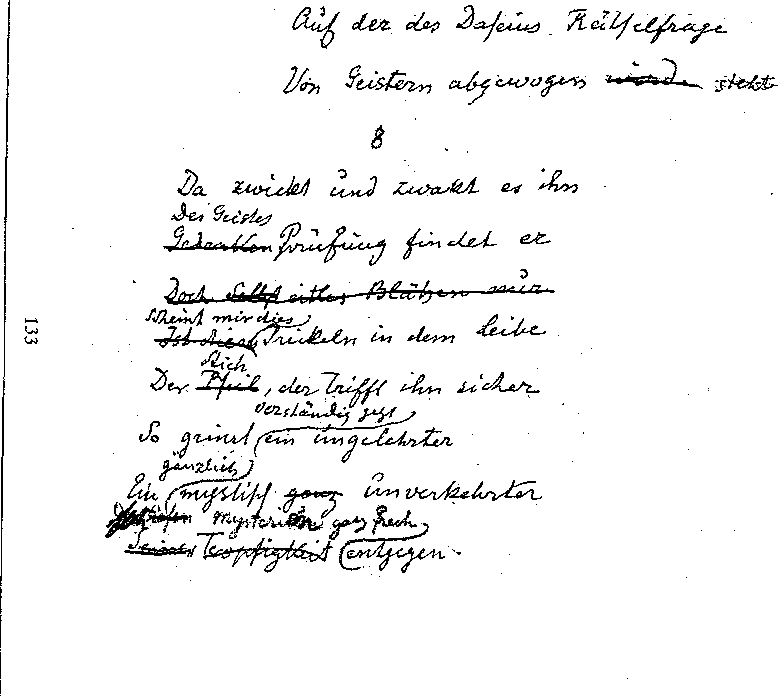 Auf der des Daseins Rätselfrage
Von Geistern abgewogen wurde steht
8
Da zwickt und zwackt es ihn
Des Geistes
Gedanken Prüfung findet er
Doch selbst eitles Blähen nur
scheint mir dies
Ist dies Prickeln in dem Leibe
Stich
Der Pfeil, der trifft ihn sicher
verständig gegt
So grinst ein ungelehrter
gänzlich
Ein mystisch ganz unverkehrter
Mysterien ganz frech
Seiner Tropfigkeit entgegen.
133